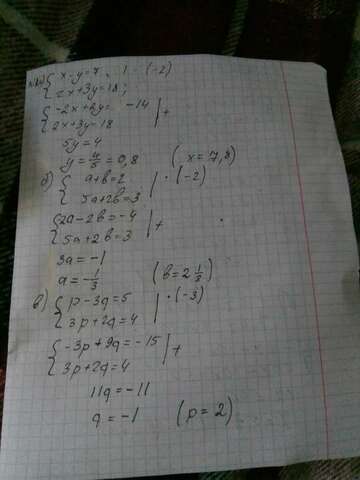 { x-y=7, | · (-2)
{ 2x+3y=18;
{ -2x+2y= -14 | +
{ 2x+3y=18
5y=4
y=4/5=0,8 (x=7,8)
б) { a+b=2 | · (-2)
{ 5a+2b=3
{ 2a-2b=-4 | +
{ 5a+2b=3
3a=-1
a=-1/3 (b=2 1/3)
в) { p-3q=5 | · (-3)
{ 3p+2q=4
{ -3p+9q=-15 | +
{ 3p+2q=4
11q=-11
q=-1 (p=2)